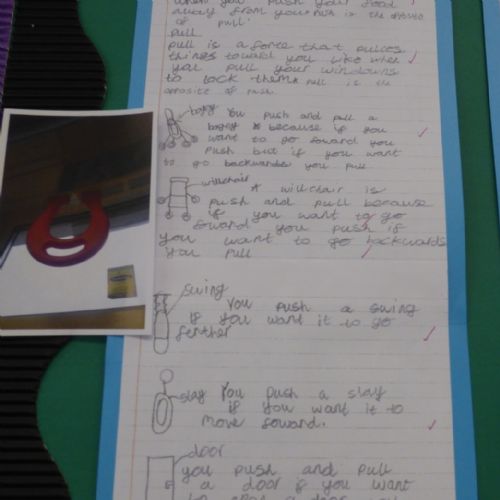 when you push your food
away from you push is the opposite
of pull.
pull
pull is a force that pulles
things toward you like when
you pull your windowns
to lock them pull is the
opposite of push.
bogey You push and pull a
bogey because if you
want to go foward you
push but if you want
to go backwards you pull
willchair
A willchair is
push and pull because
if you want to go
foward you push if
you want to go backwards
you pull
swing
You push a swing
if you want it to go
ferther
slay You push a slay
if you want it to
move foward.
door
you push and pull
a door if you want